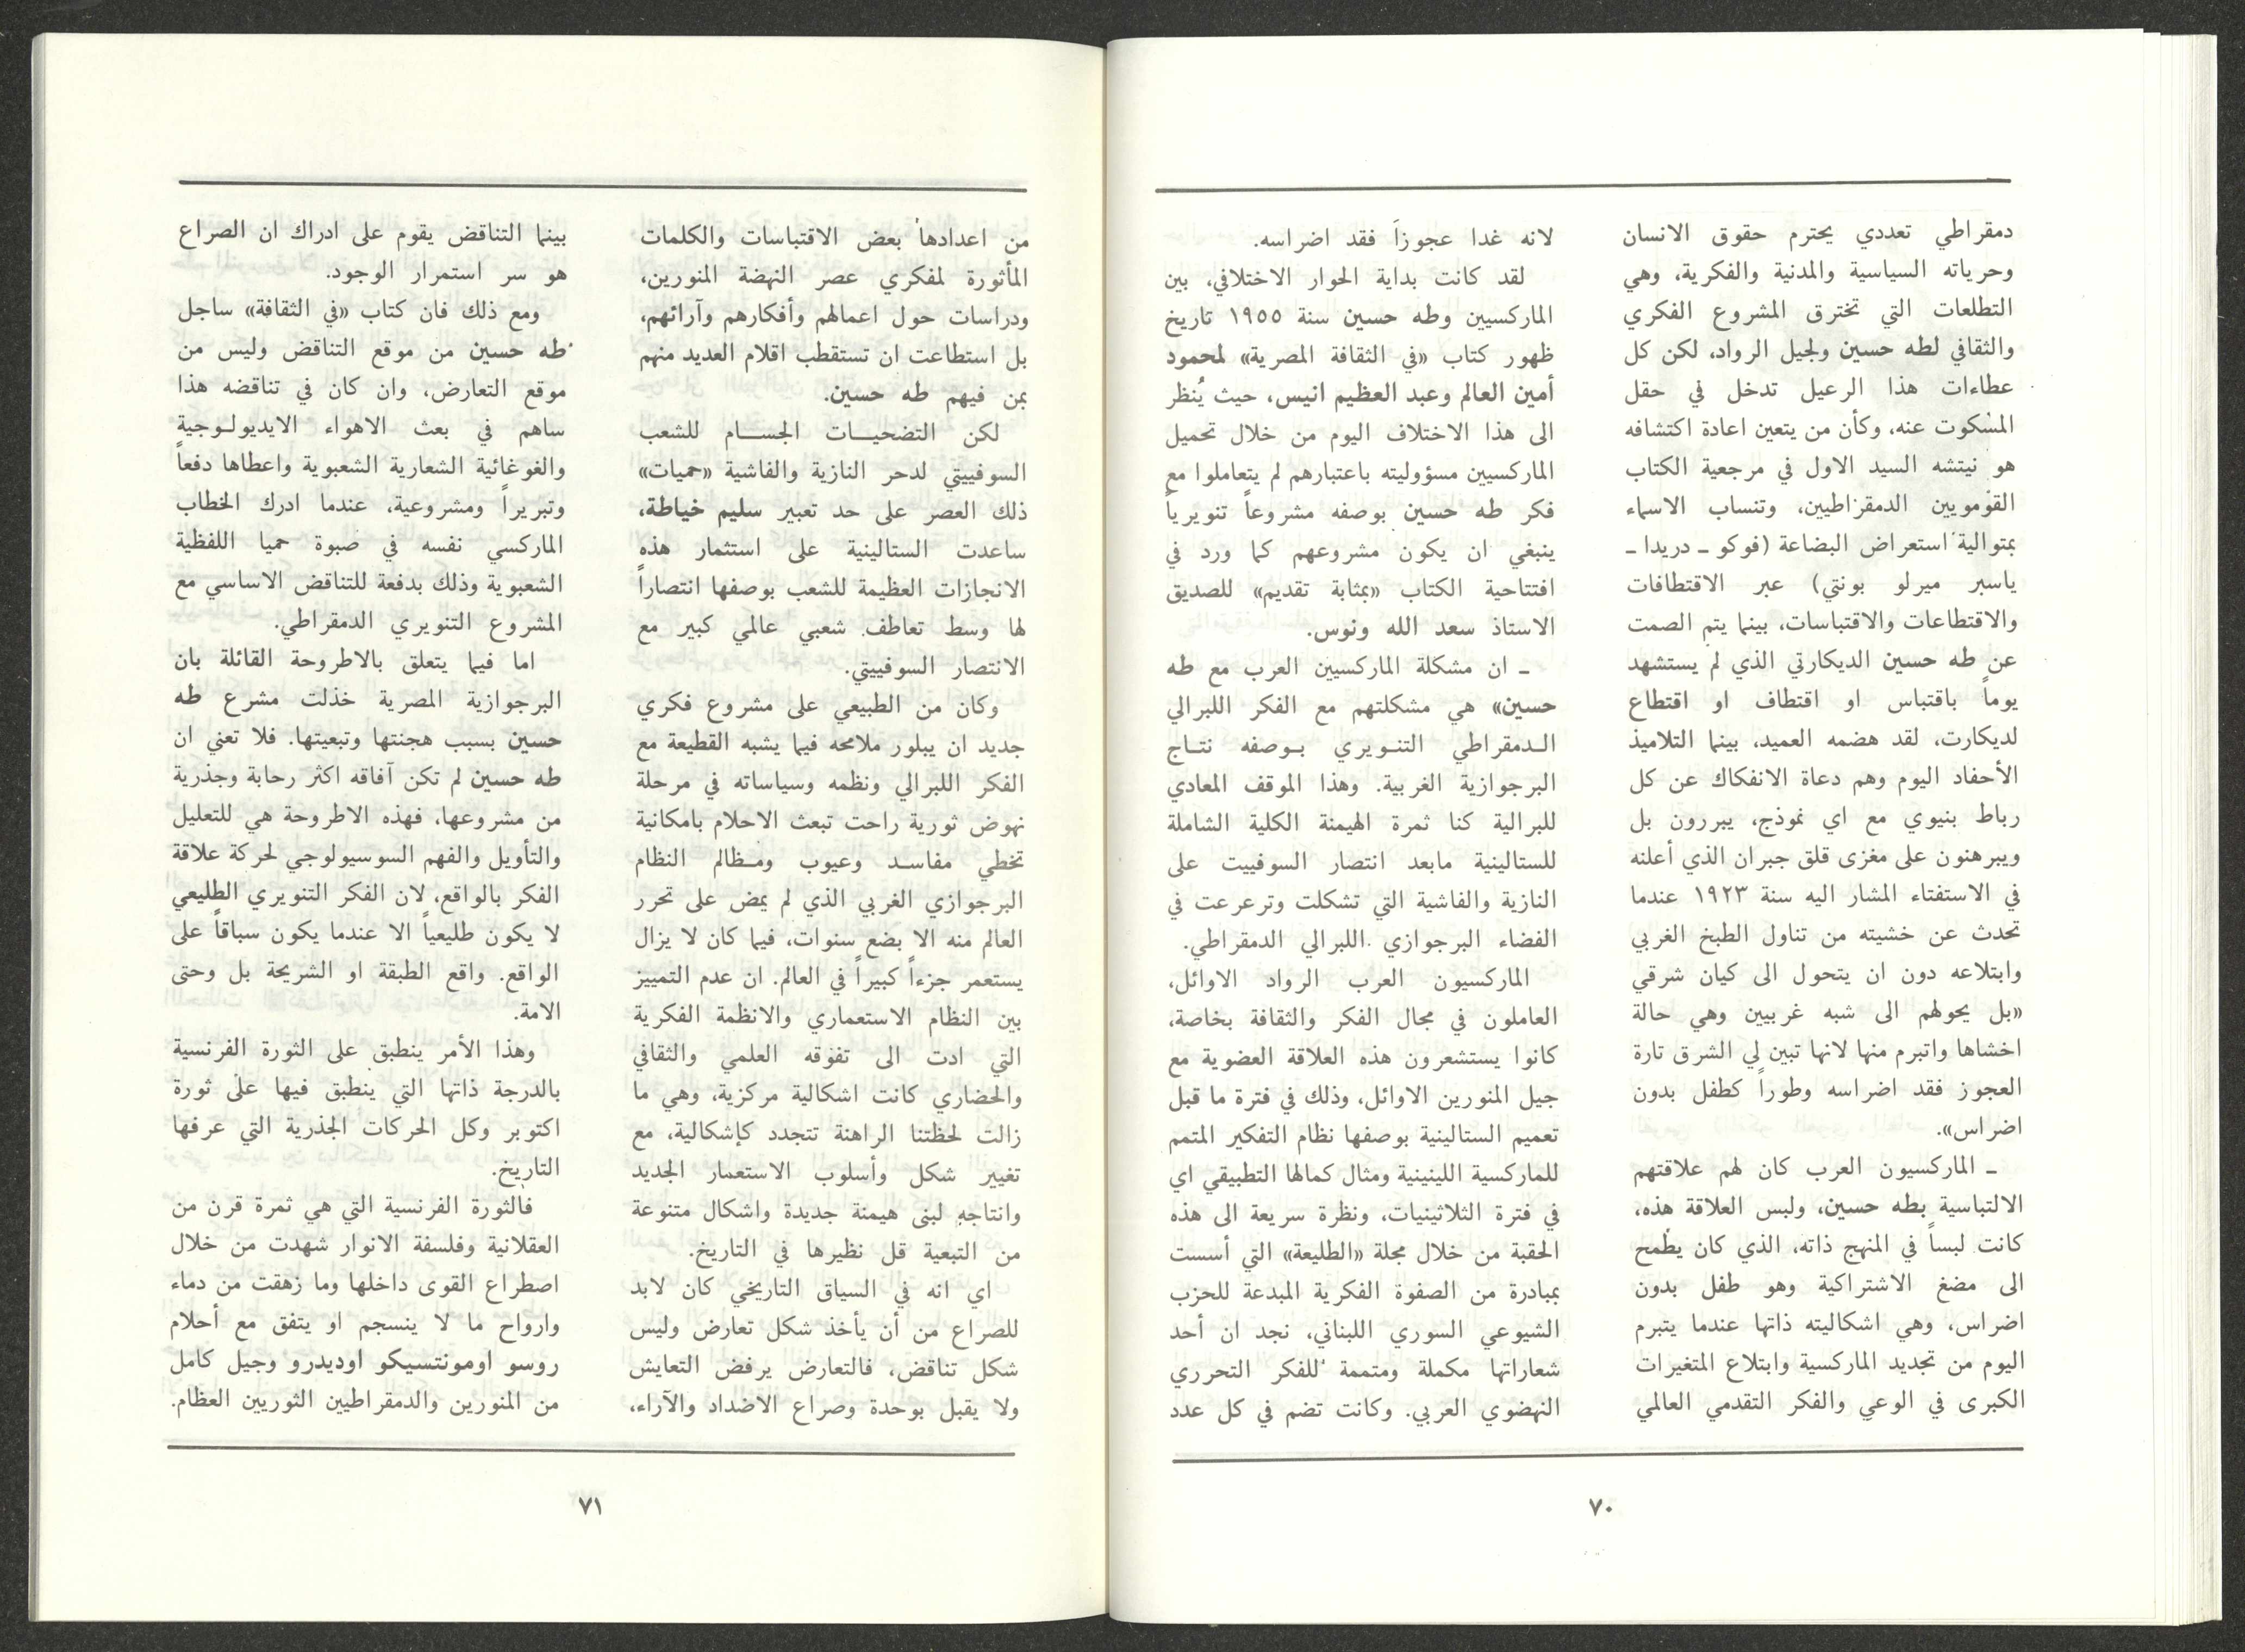 دمقراطي تعددي يحترم حقوق الانسان
وحرياته السياسية والمدنية والفكرية، وهي
التطلعات التي تخترق المشروع الفكري
والثقافي لطه حسين ولجيل الرواد، لكن كل
عطاءات هذا الرعيل تدخل في حقل
المسكوت عنه، وكأن من يتعين اعادة اكتشافه
هو نيتشه السيد الاول في مرجعية الكتاب
القومويين الدمقراطيين، وتنساب الاسماء
بمتوالية استعراض البضاعة (فوكو ـ دريدا ـ
ياسبر ميرلو بونتي) عبر الاقتطافات
والاقتطاعات والاقتباسات، بينما يتم الصمت
عن طه حسين الديكارتي الذي لم يستشهد
يوماً باقتباس او اقتطاف او اقتطاع
لديكارت، لقد هضمه العميد، بينما التلاميذ
الأحفاد اليوم وهم دعاة الانفكاك عن كل
رباط بنيوي مع اي نموذج، يبررون بل
ويبرهنون على مغزى قلق جبران الذي أعلنه
في الاستفتاء المشار اليه سنة ١٩٢٣ عندما
تحدث عن خشيته من تناول الطبخ الغربي
وابتلاعه دون ان يتحول الى كيان شرقي
«بل يحولهم الى شبه غربيين وهي حالة
اخشاها واتبرم منها لانها تبين لي الشرق تارة
العجوز فقد اضراسه وطوراً كطفل بدون
اضراس».
ـ الماركسيون العرب كان لهم علاقتهم
الالتباسية بطه حسين، ولبس العلاقة هذه،
كانت لبساً في المنهج ذاته، الذي كان يطمح
الى مضغ الاشتراكية وهو طفل بدون
اضراس، وهي اشكاليته ذاتها عندما يتبرم
اليوم من تجديد الماركسية وابتلاع المتغيرات
الكبرى في الوعي والفكر التقدمي العالمي
لانه غدا عجوزاً فقد اضراسه.
لقد كانت بداية الحوار الاختلافي، بين
الماركسيين وطه حسين سنة ١٩٥٥ تاريخ
ظهور كتاب «في الثقافة المصرية» لمحمود
أمين العالم وعبد العظيم انيس، حيث يُنظر
الى هذا الاختلاف اليوم من خلال تحميل
الماركسيين مسؤوليته باعتبارهم لم يتعاملوا مع
فكر طه حسين بوصفه مشروعاً تنويرياً
ينبغي ان يكون مشروعهم كما ورد في
افتتاحية الكتاب «بمثابة تقديم» للصديق
الاستاذ سعد الله ونوس.
ـ ان مشكلة الماركسيين العرب مع طه
حسين» هي مشكلتهم مع الفكر اللبرالي
الـدمقراطي التنـويري بـوصفه نتـاج
البرجوازية الغربية. وهذا الموقف المعادي
للبرالية كنا ثمرة الهيمنة الكلية الشاملة
للستالينية مابعد انتصار السوفييت على
النازية والفاشية التي تشكلت وترعرعت في
الفضاء البرجوازي اللبرالي الدمقراطي.
الماركسيون العرب الرواد الاوائل،
العاملون في مجال الفكر والثقافة بخاصة،
كانوا يستشعرون هذه العلاقة العضوية مع
جيل المنورين الاوائل، وذلك في فترة ما قبل
تعميم الستالينية بوصفها نظام التفكير المتمم
للماركسية اللينينية ومثال كمالها التطبيقي اي
في فترة الثلاثينيات، ونظرة سريعة الى هذه
الحقبة من خلال مجلة «الطليعة» التي أسست
بمبادرة من الصفوة الفكرية المبدعة للحزب
الشيوعي السوري اللبناني، نجد ان أحد
شعاراتها مكملة ومتممة للفكر التحرري
النهضوي العربي. وكانت تضم في كل عدد
٧٠
من اعدادها بعض الاقتباسات والكلمات
المأثورة لمفكري عصر النهضة المنورين،
ودراسات حول اعمالهم وأفكارهم وآرائهم،
بل استطاعت ان تستقطب اقلام العديد منهم
بمن فيهم طه حسين.
لكن التضحيـــات الجســـام للشعب
السوفييتي لدحر النازية والفاشية «حميات»
ذلك العصر على حد تعبير سليم خياطة،
ساعدت الستالينية على استثمار هذه
الانجازات العظيمة للشعب بوصفها انتصاراً
لها وسط تعاطف شعبي عالمي كبير مع
الانتصار السوفييتي.
وكان من الطبيعي على مشروع فكري
جديد ان يبلور ملامحه فيما يشبه القطيعة مع
الفكر اللبرالي ونظمه وسياساته في مرحلة
نهوض ثورية راحت تبعث الاحلام بامكانية
تخطي مفاسـد وعيوب ومـظالم النظام
البرجوازي الغربي الذي لم يمض على تحرر
العالم منه الا بضع سنوات، فيما كان لا يزال
يستعمر جزءاً كبيراً في العالم. ان عدم التمييز
بين النظام الاستعماري والانظمة الفكرية
التي ادت الى تفوقه العلمي والثقافي
والحضاري كانت اشكالية مركزية، وهي ما
زالت لحظتنا الراهنة تتجدد كإشكالية، مع
تغيير شكل وأسلوب الاستعمار الجديد
وانتاجه لبنى هيمنة جديدة واشكال متنوعة
من التبعية قل نظيرها في التاريخ.
اي انه في السياق التاريخي كان لابد
للصراع من أن يأخذ شكل تعارض وليس
شكل تناقض، فالتعارض يرفض التعايش
ولا يقبل بوحدة وصراع الاضداد والآراء،
بينما التناقض يقوم على ادراك ان الصراع
هو سر استمرار الوجود.
ومع ذلك فان كتاب «في الثقافة» ساجل
طه حسين من موقع التناقض وليس من
موقع التعارض، وان كان في تناقضه هذا
ساهم في بعث الاهواء الايديولـوجية
والغوغائية الشعارية الشعبوية واعطاها دفعاً
وتبريراً ومشروعية، عندما ادرك الخطاب
الماركسي نفسه في صبوة حميا اللفظية
الشعبوية وذلك بدفعة للتناقض الاساسي مع
المشروع التنويري الدمقراطي.
اما فيما يتعلق بالاطروحة القائلة بان
البرجوازية المصرية خذلت مشرع طه
حسين بسبب هجنتها وتبعيتها. فلا تعني ان
طه حسين لم تكن آفاقه اكثر رحابة وجذرية
من مشروعها، فهذه الاطروحة هي للتعليل
والتأويل والفهم السوسيولوجي لحركة علاقة
الفكر بالواقع، لان الفكر التنويري الطليعي
لا يكون طليعياً الا عندما يكون سباقاً على
الواقع. واقع الطبقة او الشريحة بل وحتى
الامة.
وهذا الأمر ينطبق على الثورة الفرنسية
بالدرجة ذاتها التي ينطبق فيها على ثورة
اكتوبر وكل الحركات الجذرية التي عرفها
التاريخ.
فالثورة الفرنسية التي هي ثمرة قرن من
العقلانية وفلسفة الانوار شهدت من خلال
اصطراع القوى داخلها وما زهقت من دماء
وارواح ما لا ينسجم او يتفق مع أحلام
روسو اومونتسيكو اوديدرو وجيل كامل
من المنورين والدمقراطيين الثوريين العظام.
٧١